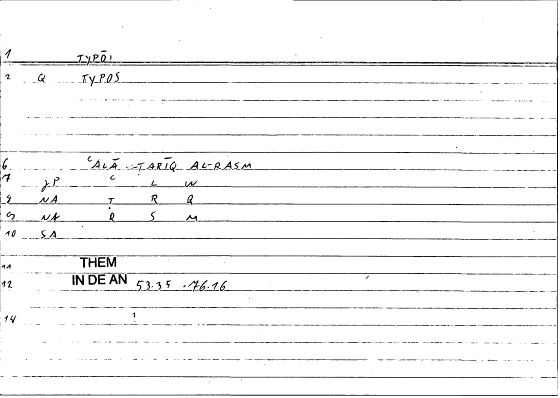 1 TYPŌI
2 Q TYPOS
6 ʿALĀ ṬARĪQ AL-RASM
7 jP ʿ L W
8 NA Ṭ R Q
9 NA R S M
10 SA
11 THEM
12 IN DE AN 53.35 - 76.16
14 1